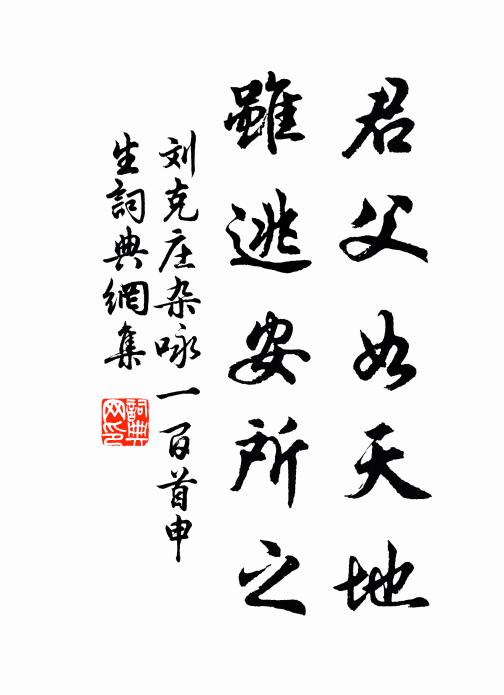 君父如天地
雖逃安所之
刘克庄杂咏一百首申
生詞典網集
詞典
网印